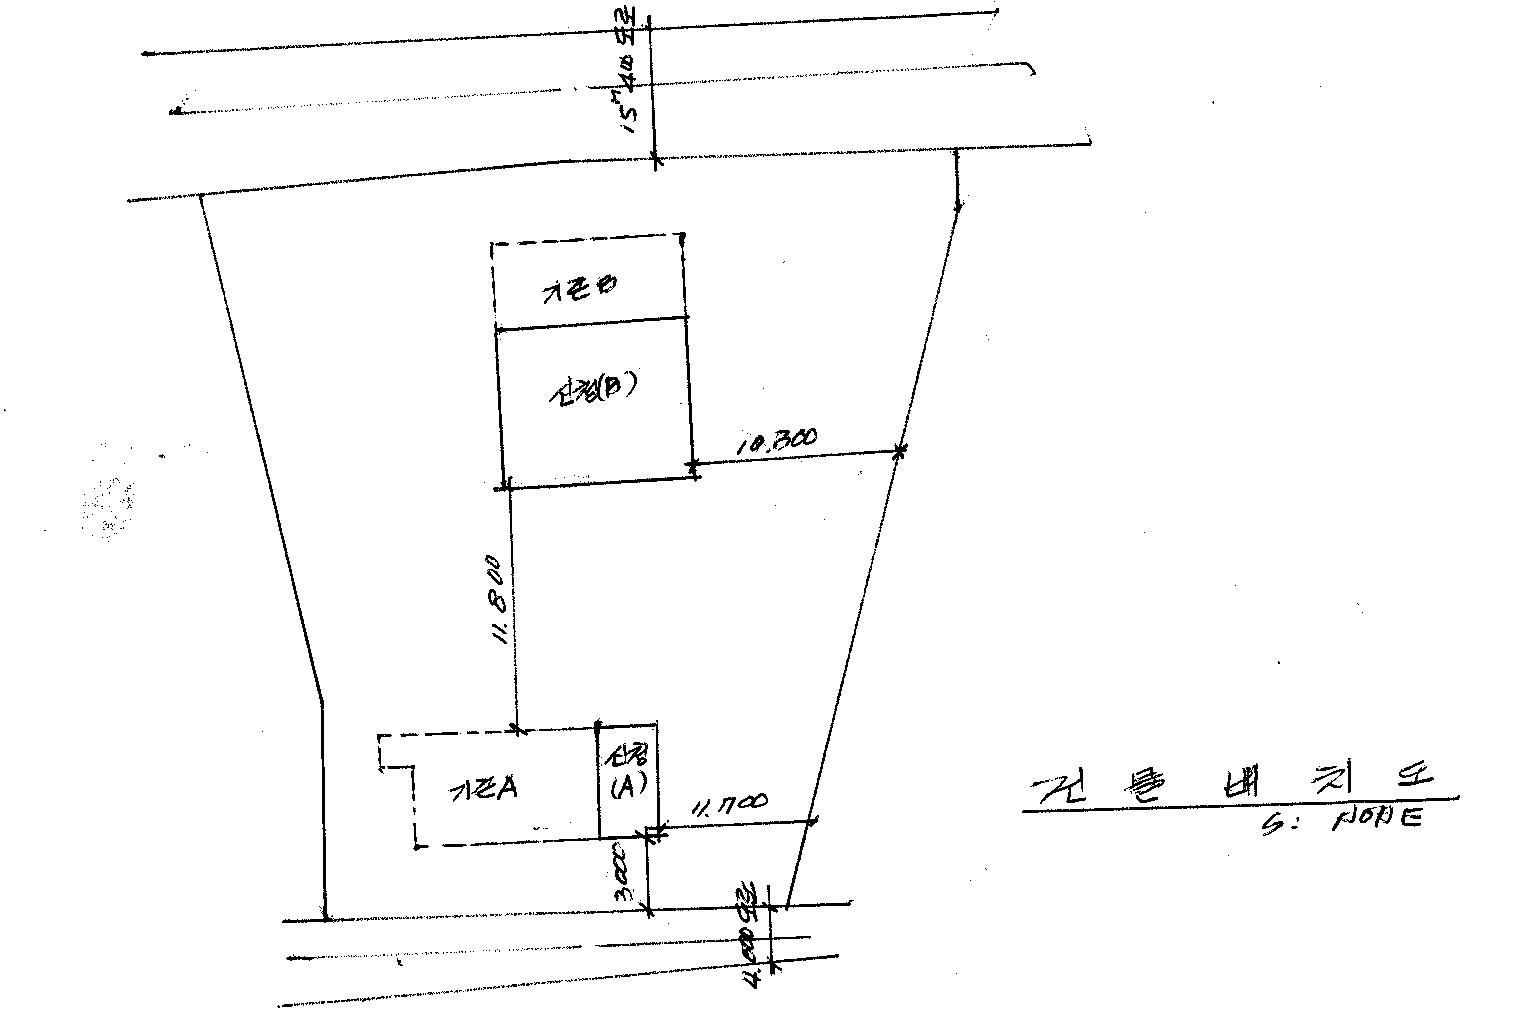 15M 400 도로
기존 B
신청(B)
10.300
11.800
기존A
신청
(A)
11.700
3.000
4.000 도로
건물배치도
S: NONE